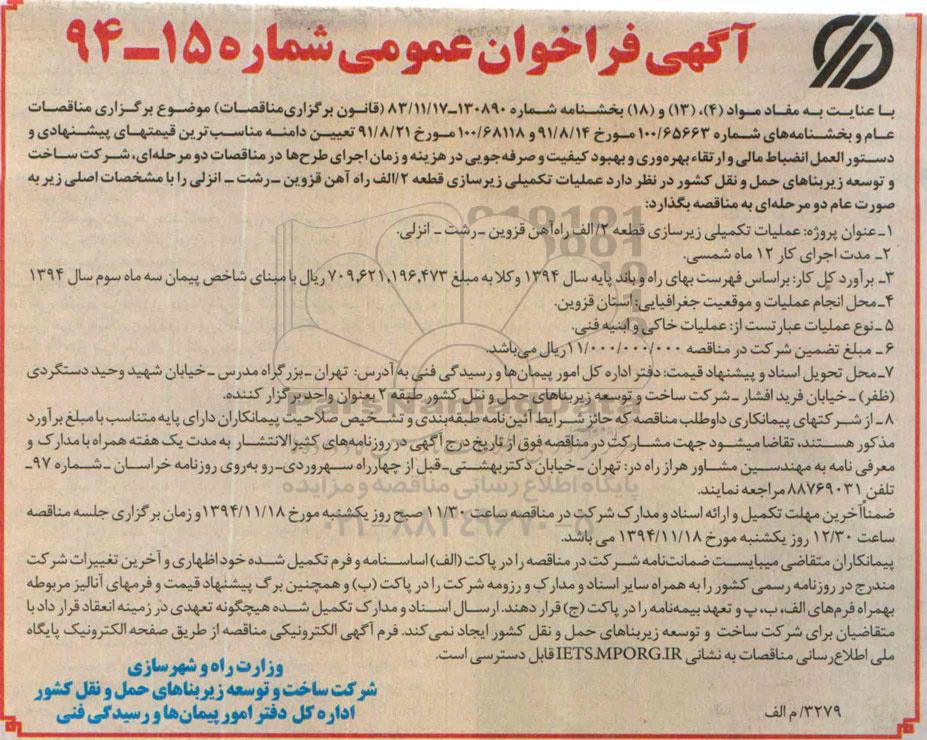 آگهی فراخوان عمومی شماره ۱۵-۹۴
با عنایت به مفاد مواد (۴)، (۱۳) و (۱۸) بخشنامه شماره ۱۳۰۸۹۰-۸۳/۱۱/۱۷ (قانون برگزاری مناقصات) موضوع برگزاری مناقصات
عام و بخشنامه‌های شماره ۱۰۰/۶۵۶۶۳ مورخ ۹۱/۸/۱۴ و ۱۰۰/۶۸۱۱۸ مورخ ۹۱/۸/۲۱ تعیین دامنه مناسب‌ترین قیمتهای پیشنهادی و
دستور العمل انضباط مالی و ارتقاء بهره‌وری و بهبود کیفیت و صرفه‌جویی در هزینه و زمان اجرای طرح‌ها در مناقصات دو مرحله‌ای، شرکت ساخت
و توسعه زیربناهای حمل و نقل کشور در نظر دارد عملیات تکمیلی زیرسازی قطعه ۲/الف راه آهن قزوین – رشت – انزلی را با مشخصات اصلی زیر به
صورت عام دو مرحله‌ای به مناقصه بگذارد:
۱- عنوان پروژه: عملیات تکمیلی زیرسازی قطعه ۲/الف راه‌آهن قزوین – رشت – انزلی.
۲- مدت اجرای کار ۱۲ ماه شمسی.
۳- برآورد کل کار: براساس فهرست بهای راه و باند پایه سال ۱۳۹۴ و کلا به مبلغ ۷۰۹,۶۲۱,۱۹۶,۴۷۳ ریال با مبنای شاخص پیمان سه ماه سوم سال ۱۳۹۴
۴- محل انجام عملیات و موقعیت جغرافیایی: استان قزوین.
۵- نوع عملیات عبارتست از: عملیات خاکی و ابنیه فنی.
۶- مبلغ تضمین شرکت در مناقصه ۱۱/۰۰۰/۰۰۰/۰۰۰ ریال می‌باشد.
۷- محل تحویل اسناد و پیشنهاد قیمت: دفتر اداره کل امور پیمان‌ها و رسیدگی فنی به آدرس: تهران – بزرگراه مدرس – خیابان شهید وحید دستگردی
(ظفر) – خیابان فرید افشار – شرکت ساخت و توسعه زیربناهای حمل و نقل کشور طبقه ۲ بعنوان واحد برگزار کننده.
۸- از شرکتهای پیمانکاری داوطلب مناقصه که حائز شرایط آئین‌نامه طبقه‌بندی و تشخیص صلاحیت پیمانکاران دارای پایه متناسب با مبلغ برآورد
مذکور هستند، تقاضا میشود جهت مشارکت در مناقصه فوق از تاریخ درج آگهی در روزنامه‌های کثیرالانتشار به مدت یک هفته همراه با مدارک و
معرفی نامه به مهندسین مشاور هراز راه در: تهران – خیابان دکتربهشتی – قبل از چهارراه سهروردی – رو به‌روی روزنامه خراسان – شماره ۹۷ –
تلفن ۸۸۷۶۹۰۳۱ مراجعه نمایند.
ضمناً آخرین مهلت تکمیل و ارائه اسناد و مدارک شرکت در مناقصه ساعت ۱۱/۳۰ صبح روز یکشنبه مورخ ۱۳۹۴/۱۱/۱۸ و زمان برگزاری جلسه مناقصه
ساعت ۱۲/۳۰ روز یکشنبه مورخ ۱۳۹۴/۱۱/۱۸ می باشد.
پیمانکاران متقاضی میبایست ضمانت‌نامه شرکت در مناقصه را در پاکت (الف) اساسنامه و فرم تکمیل شده خود اظهاری و آخرین تغییرات شرکت
مندرج در روزنامه رسمی کشور را به همراه سایر اسناد و مدارک و رزومه شرکت را در پاکت (ب) و همچنین برگ پیشنهاد قیمت و فرمهای آنالیز مربوطه
بهمراه فرم‌های الف، ب، پ و تعهد بیمه‌نامه را در پاکت (ج) قرار دهند. ارسال اسناد و مدارک تکمیل شده هیچگونه تعهدی در زمینه انعقاد قرار داد با
متقاضیان برای شرکت ساخت و توسعه زیربناهای حمل و نقل کشور ایجاد نمی‌کند. فرم آگهی الکترونیکی مناقصه از طریق صفحه الکترونیک پایگاه
ملی اطلاع‌رسانی مناقصات به نشانی IETS.MPORG.IR قابل دسترسی است.
وزارت راه و شهرسازی
شرکت ساخت و توسعه زیربناهای حمل و نقل کشور
اداره کل دفتر امور پیمان‌ها و رسیدگی فنی
۳۲۷۹/م الف
ParsNamadData
پایگاه اطلاع رسانی مناقصه و مزایده
۰۲۱-۸۸۳۴۹۶۷۰-۵